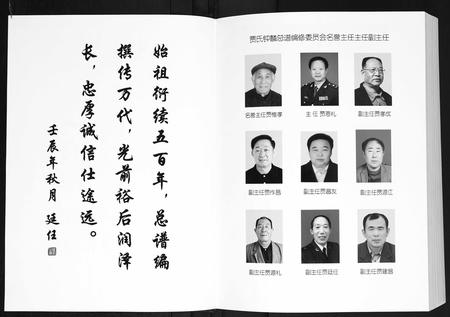 始祖衍续五百年，总谱编
撰传万代，光前裕后润泽
长，忠厚诚信仕途远。
壬辰年秋月 廷任
贾氏钟麟总谱编修委员会名誉主任主任副主任
名誉主任贾惟孝 主 任 贾恩礼 副主任贾孝优
副主任贾作昌 副主任贾昌友 副主任贾源江
副主任贾源礼 副主任贾廷任 副主任贾建昌